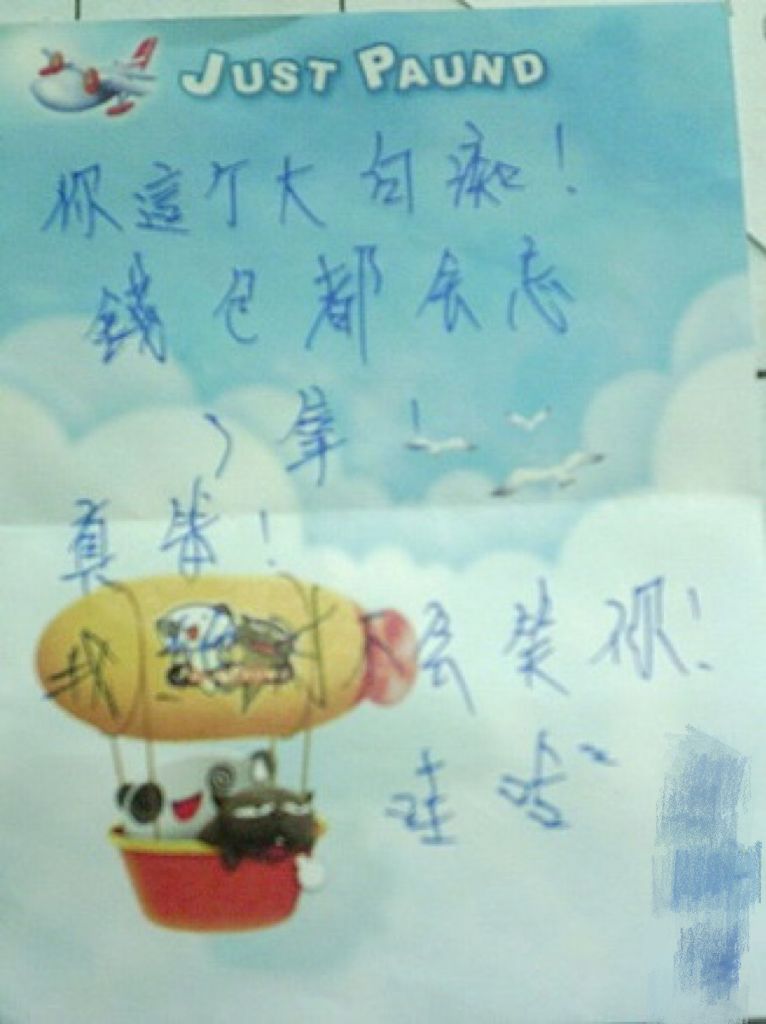 JUST PAUND
你這个大白痴！
錢包都会忘
了拿！
真笨！
我 才不会笑你！
哇哈~